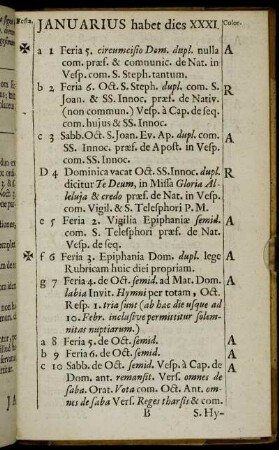 Festa.
JANUARIUS habet dies XXXI.
Color.
✠ a 1 Feria 5. circumcisio Dom. dupl. nulla A
com. præf. & communic. de Nat. in
Vesp. com. S. Steph. tantum.
b 2 Feria 6. Oct. S. Steph. dupl. com. S. R
Joan. & SS. Innoc. præf. de Nativ.
(non commun.) Vesp. à Cap. de seq.
com. hujus & SS. Innoc.
c 3 Sabb. Oct. S. Joan. Ev. Ap. dupl. com. A
SS. Innoc. præf. de Apost. in Vesp.
com. SS. Innoc.
D 4 Dominica vacat Oct. SS. Innoc. dupl. R
dicitur Te Deum, in Missa Gloria Al-
leluja & credo præf. de Nat. in Vesp.
com. Vigil. & S. Telesphori P. M.
e 5 Feria 2. Vigilia Epiphaniæ semid. A
com. S. Telesphori præf. de Nat.
Vesp. de seq.
✠ f 6 Feria 3. Epiphania Dom. dupl. lege A
Rubricam huic diei propriam.
g 7 Feria 4. de Oct. semid. ad Mat. Dom. A
labia Invit. Hymni per totam, Oct.
Resp. 1. tria sunt (ab hac die usque ad
10. Febr. inclusive permittitur solem-
nitas nuptiarum.)
a 8 Feria 5. de Oct. semid. A
b 9 Feria 6. de Oct. semid. A
c 10 Sabb. de Oct. semid. Vesp. à Cap. de A
Dom. ant. remansit. Vers. omnes de
saba. Orat. Vota com. Oct. Ant. om-
nes de saba Vers. Reges tharsis & com.
B S. Hy-